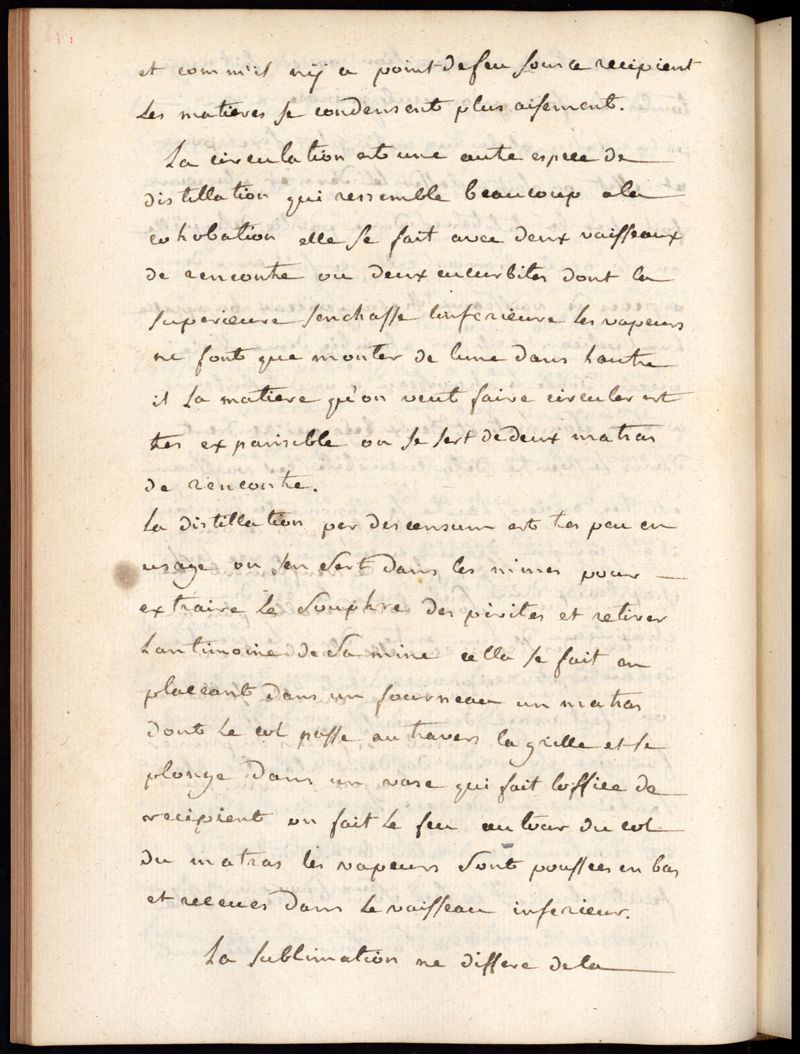 et comm'il nÿ a point de feu sous ce recipient
les matieres se condensent plus aisement.
La circulation est une autre espece de
distillation qui ressemble beaucoup a la
cohobation elle se fait avec deux vaisseaux
de rencontre ou deux cucurbites dont la
superieure senchasse linferieure les vapeurs
ne font que monter de lune dans lautre
si la matiere qu'on veut faire circuler est
tres expansible on se sert de deux matras
de rencontre.
La distillation per descensum est tres peu en
usage on sen sert dans les mines pour
extraire le souphre des pirites et retirer
lantimoine de sa mine cella se fait en
placeant dans un fourneau un matras
dont le col passe au travers la grille et se
plonge dans un vase qui fait loffice de
recipient on fait le feu autour du col
du matras les vapeurs sont poussées en bas
et receues dans le vaisseau inferieur.
La sublimation ne differe de la